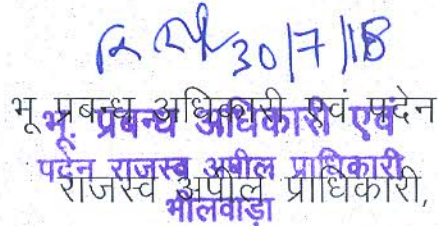 30/7/18
भू प्रबन्ध अधिकारी एवं पदेन
भू. प्रबन्ध अधिकारी एवं
पदेन राजस्व अपील प्राधिकारी
राजस्व अपील प्राधिकारी,
भीलवाड़ा